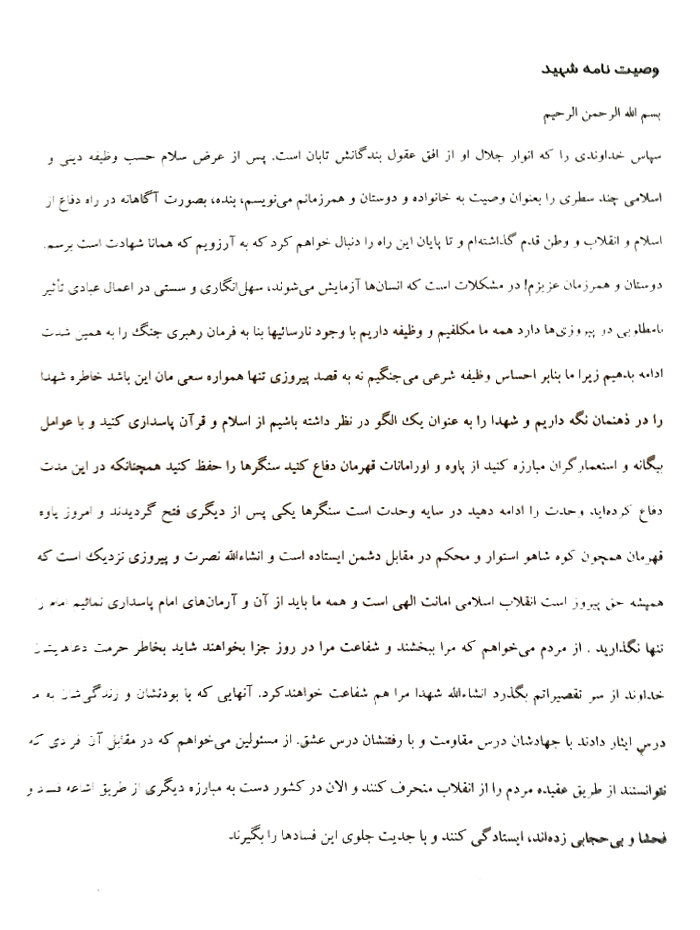 وصیت نامه شهید
بسم الله الرحمن الرحیم
سپاس خداوندی را که انوار جلال او از افق عقول بندگانش تابان است. پس از عرض سلام حسب وظیفه دینی و
اسلامی چند سطری را بعنوان وصیت به خانواده و دوستان و همرزمانم می‌نویسم، بنده، بصورت آگاهانه در راه دفاع از
اسلام و انقلاب و وطن قدم گذاشته‌ام و تا پایان این راه را دنبال خواهم کرد که به آرزویم که همانا شهادت است برسم.
دوستان و همرزمان عزیزم! در مشکلات است که انسان‌ها آزمایش می‌شوند، سهل‌انگاری و سستی در اعمال عبادی تأثیر
نامطلوبی در پیروزی‌ها دارد همه ما مکلفیم و وظیفه داریم با وجود نارسائیها بنا به فرمان رهبری جنگ را به همین شدت
ادامه بدهیم زیرا ما بنابر احساس وظیفه شرعی می‌جنگیم نه به قصد پیروزی تنها همواره سعی مان این باشد خاطره شهدا
را در ذهنمان نگه داریم و شهدا را به عنوان یک الگو در نظر داشته باشیم از اسلام و قرآن پاسداری کنید و با عوامل
بیگانه و استعمارگران مبارزه کنید از پاوه و اورامانات قهرمان دفاع کنید سنگرها را حفظ کنید همچنانکه در این مدت
دفاع کرده‌اید وحدت را ادامه دهید در سایه وحدت است سنگرها یکی پس از دیگری فتح گردیدند و امروز پاوه
قهرمان همچون کوه شاهو استوار و محکم در مقابل دشمن ایستاده است و انشاءالله نصرت و پیروزی نزدیک است که
همیشه حق پیروز است انقلاب اسلامی امانت الهی است و همه ما باید از آن و آرمان‌های امام پاسداری نمائیم امام را
تنها نگذارید . از مردم می‌خواهم که مرا ببخشند و شفاعت مرا در روز جزا بخواهند شاید بخاطر حرمت دعاهایشان
خداوند از سر تقصیراتم بگذرد انشاءالله شهدا مرا هم شفاعت خواهندکرد. آنهایی که با بودنشان و زندگی‌شان به ما
درس ایثار دادند با جهادشان درس مقاومت و با رفتنشان درس عشق. از مسئولین می‌خواهم که در مقابل آن افرادی که
نتوانستند از طریق عقیده مردم را از انقلاب منحرف کنند و الان در کشور دست به مبارزه دیگری از طریق اشاعه فساد و
فحشا و بی‌حجابی زده‌اند، ایستادگی کنند و با جدیت جلوی این فسادها را بگیرند.